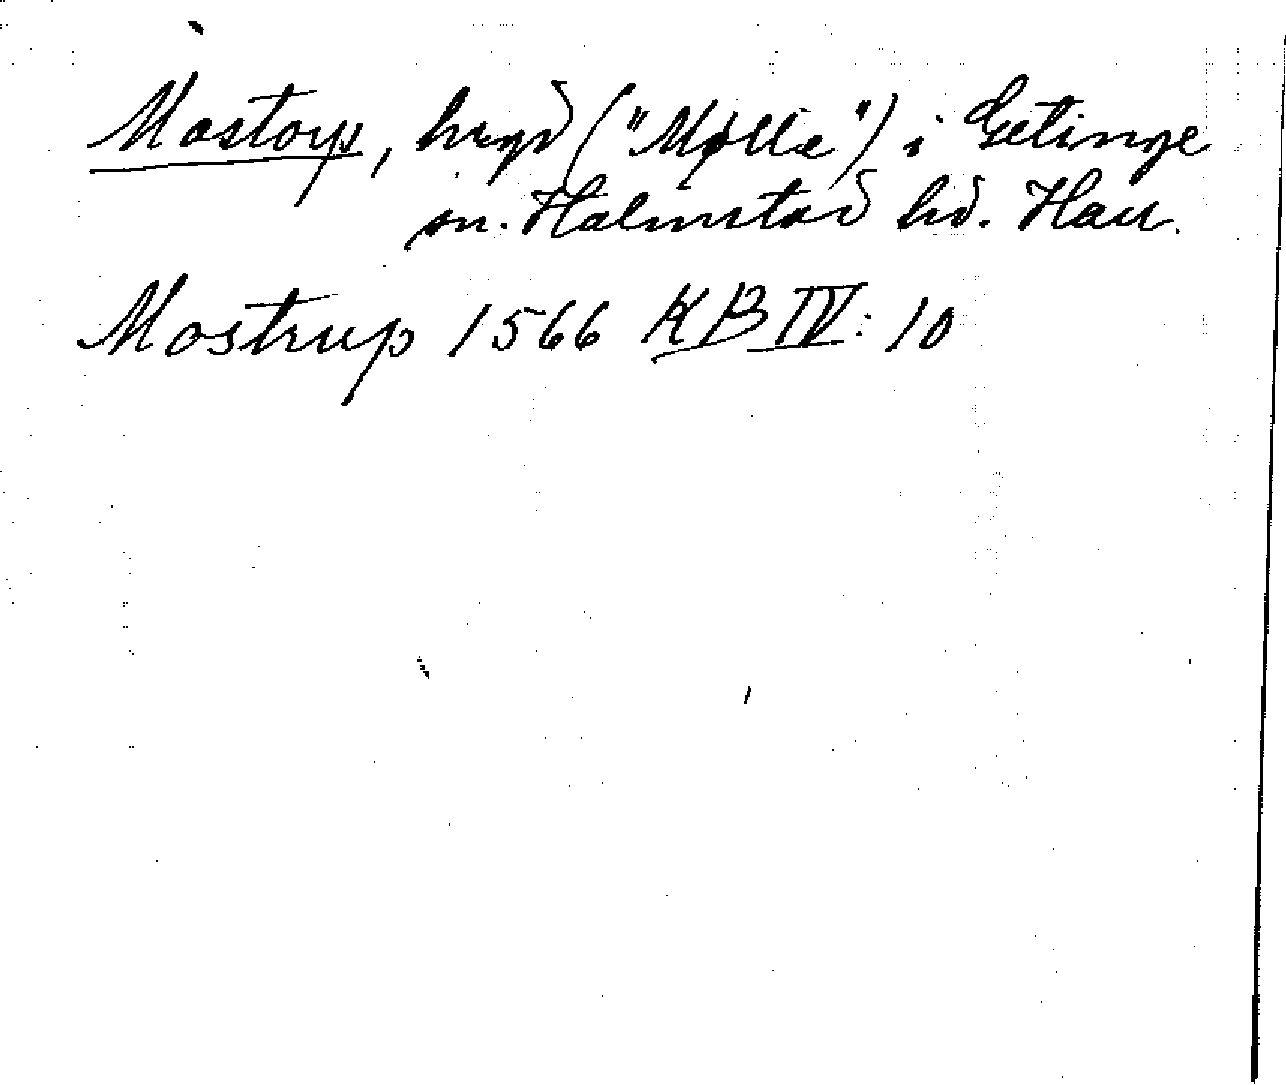 Mostorp, bryd ("Mølle") i Getinge
sn. Halmstad hd. Hall.
Mostrup 1566 KB IV: 10